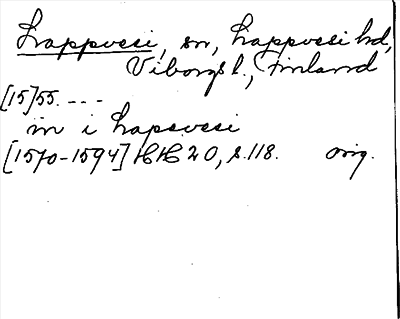 Lappvesi, sn, Lappvesi hd,
Viborgs l., Finland
[15]55. ---
in i Lapsvesi
[1570-1594] HH 20, s. 118. orig.